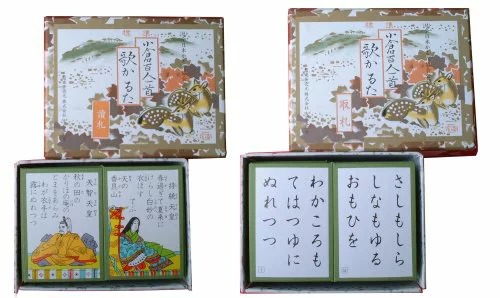 標準
小倉百人一首
歌かるた
読札
標準
小倉百人一首
歌かるた
取札
持統天皇
春過ぎて夏来に
けらし白妙の
衣ほすてふ
天の
香具山
天智天皇
秋の田の
かりほの庵の
とまをあらみ
わが衣手は
露にぬれつつ
さしもしら
しなもゆる
おもひを
わかころも
てはつゆに
ぬれつつ